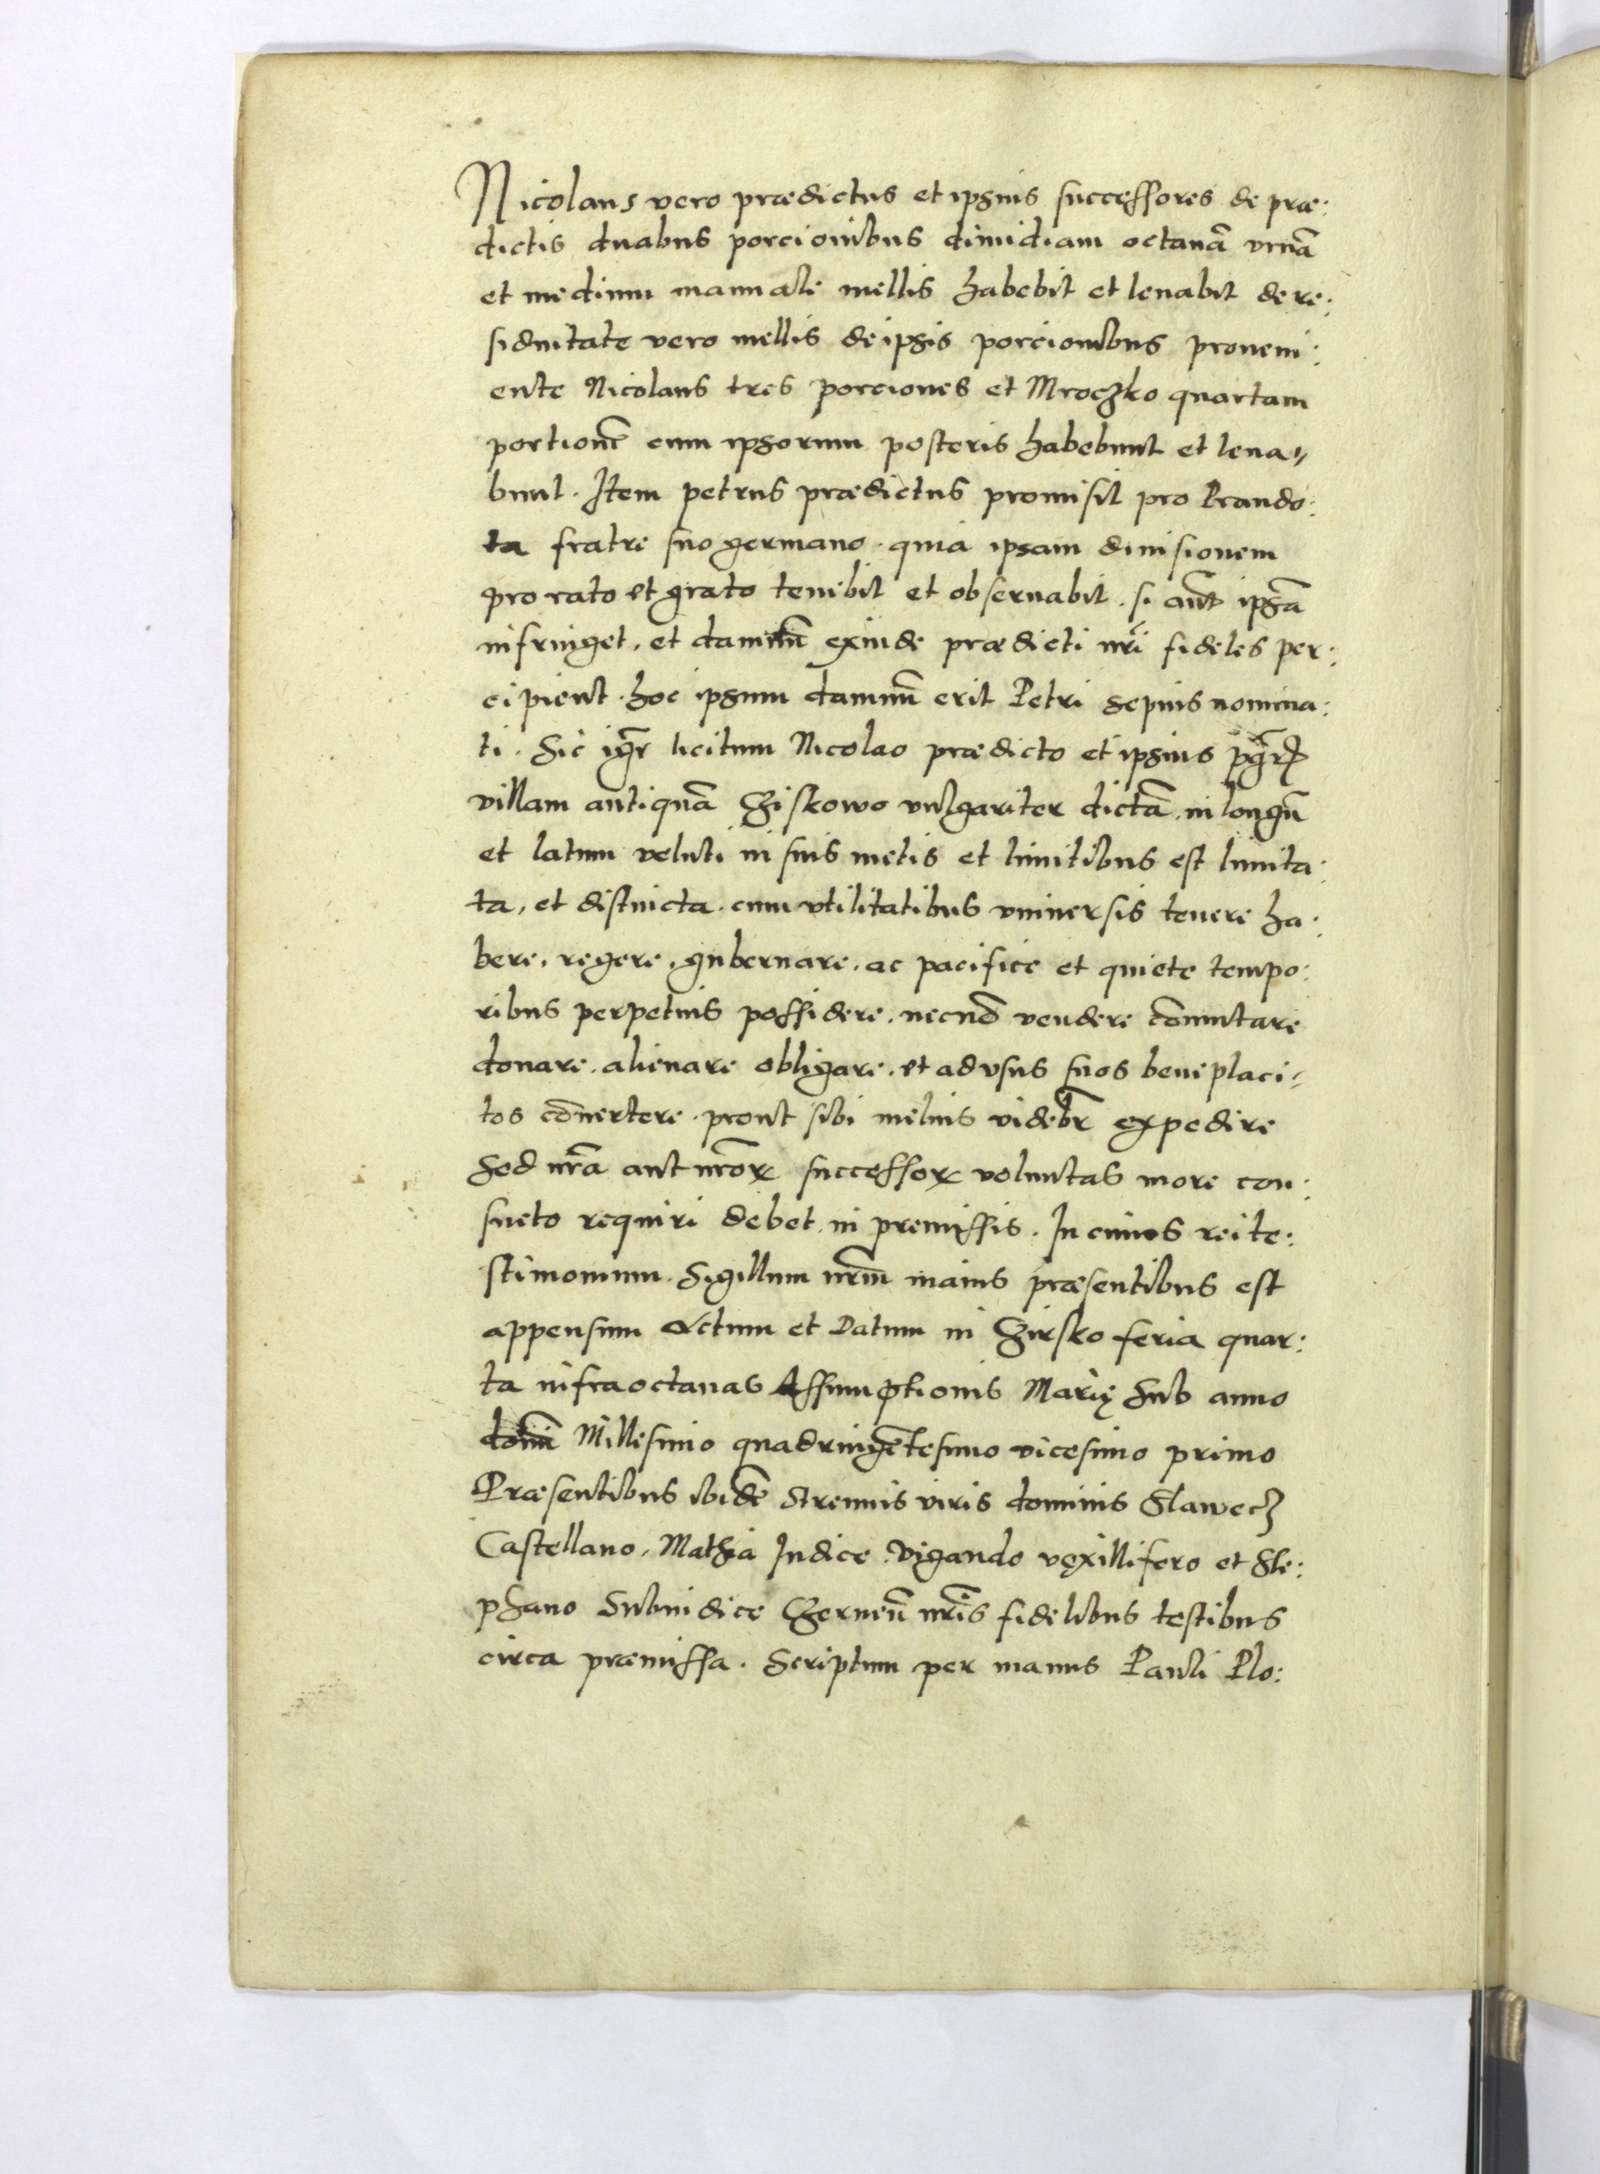 Nicolaus vero prædictus et ipsius successores de præ:
dictis duabus porcionibus dimidiam octauā vrnā
et medium manuale mellis habebit et leuabit de re:
siduitate vero mellis de ipsis porcionibus proueni:
ente Nicolaus tres porciones et Mroczko quartam
portionē cum ipsorum posteris habebunt et leua⸗
bunt. Item petrus prædictus promisit pro Prando:
ta fratre suo germano. quia ipsam diuisionem
pro rato et grato tenibit et obseruabit. si aut̄ ipsā
infringet, et damnū exinde prædicti nr̄i fideles per:
cipient. hoc ipsum damnū erit Petri sepius nomina:
ti. Sic igr̄ licitum Nicolao prædicto et ipsius
villam antiquā Cziskowo vulgariter dictā, in longū
et latum veluti in suis metis et limitibus est limita:
ta, et distincta. cum vtilitatibus vniuersis tenere ha:
bere, regere, gubernare, ac pacifice et quiete tempo:
ribus perpetuis possidere, necnō vendere cōmutare
donare, alienare obligare, et ad vsus suos beneplaci⸗
tos cōuertere. prout sibi melius videbr̄ expedire
Sed nr̄a aut nr̄oꝝ successoꝝ voluntas more con:
sueto requiri debet in premissis. In cuius rei te:
stimonium. Sigillum nr̄m maius præsentibus est
appensum Actum et Datum in Czirsko feria quar:
ta infra octauas Assumptionis Marię Sub anno
domī Millesimo quadringētesimo vicesimo primo
Præsentibus ibidē strenuis viris dominis Slawecz
Castellano, Mathia Iudice, Vigando vexillifero et Ste:
phano Subiudice Czerneñ nr̄is fidelibus testibus
circa præmissa. Scriptum per manus Pauli Plo: